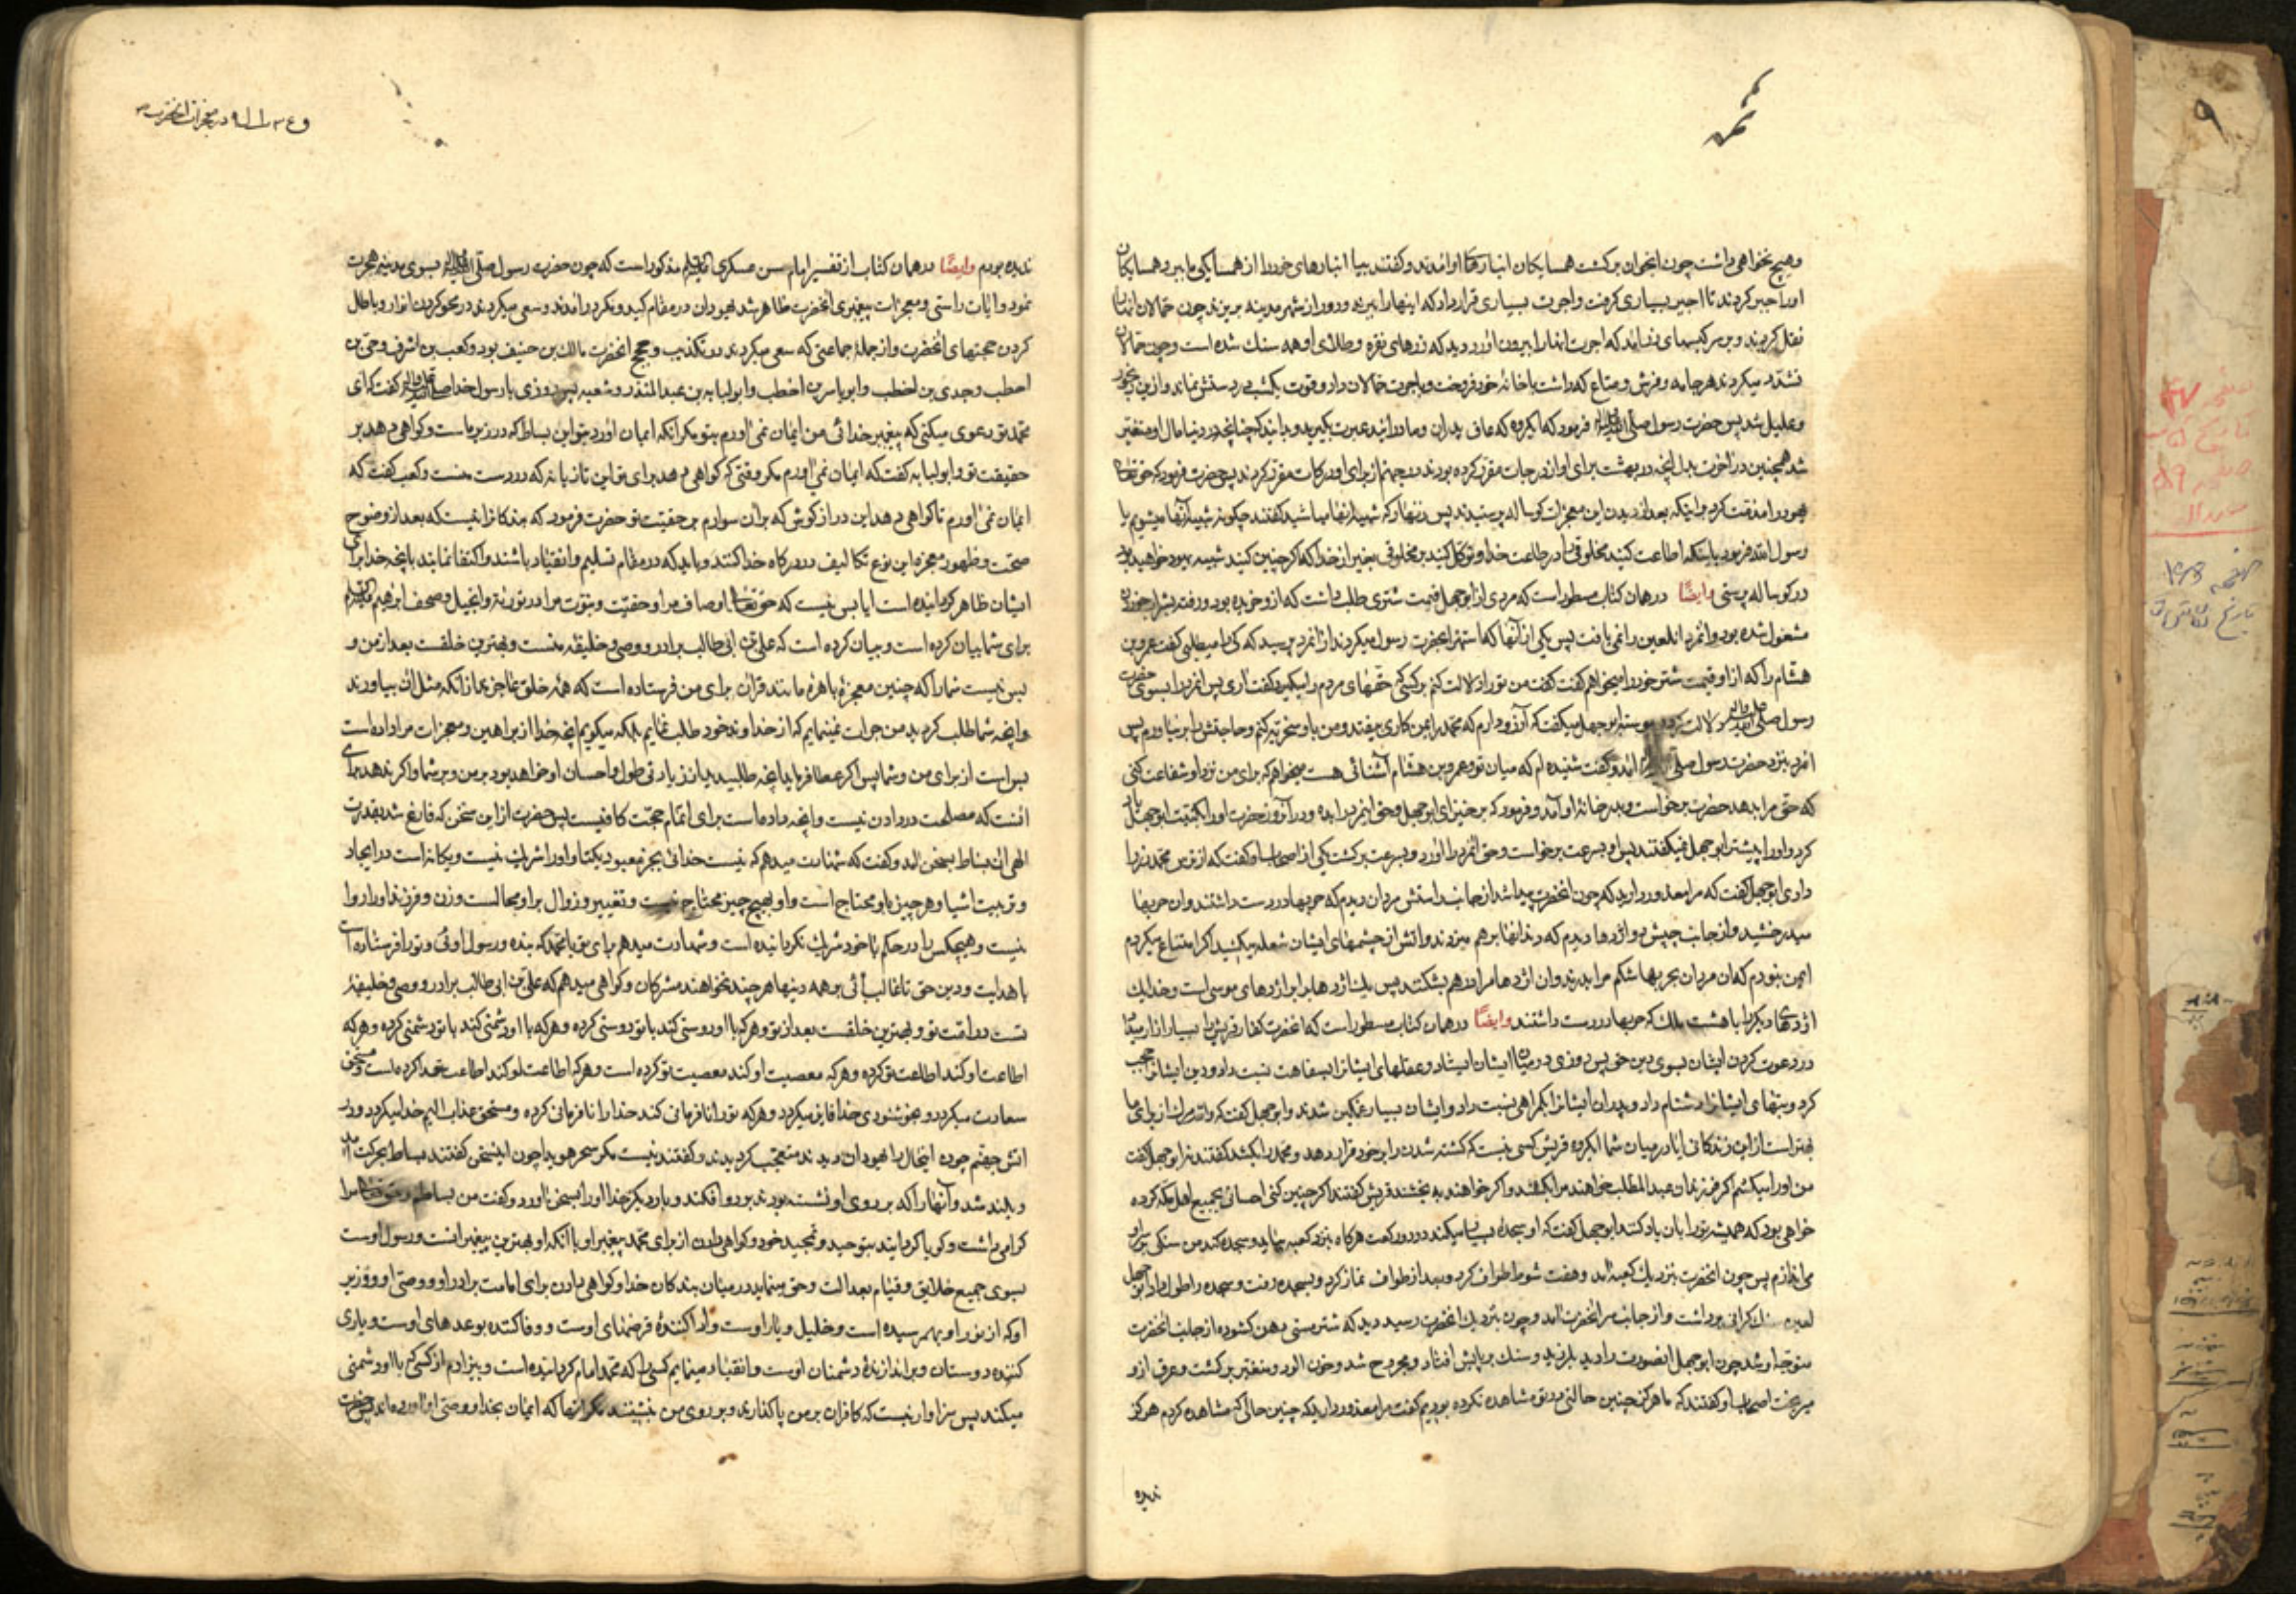 وهیچ نخواهی داشت چون ایخوان برکشت همسایکان انبارهٔا او امدند و کفتند بیا انبارهای خود را از همسایکی ما ببر و همسایکان
اورا جبر کردند تا اجیر بسیاری کرفت و اجرت بسیاری قرار داد که اینها را ببرند و دور از شهر مدینه بریزند چون حمالان انبان
نقل کردند و بر سر کیسهای زر امدند که اجرت انبار را بیرون اورد دید که زرهای نقره و طلای او همه سنک شده است و چون حمالان
تشدد میکردند هر جامه و فرش و متاع که داشت با خانهٔ خود فروخت و باجرت حمالان داد و قوت یکشب در دستش نماند و ازین
وعلیل شد پس حضرت رسول صلی الله فرمود که ایکروه که عاق پدران و مادرانید عبرت بکیرید و بدانید که چنانچه در دنیا مال او متغیر
شد همچنین در اخرت بدل انچه در بهشت برای او از درجات مقرر کرده بودند در جهنم از برای او درکات مقرر کردند پس حضرت فرمود که حق تعالی
یهود را مذمت کرد باینکه بعد از دیدن این معجزات کوساله پرستیدند پس زنهار که شبیه ایشان مباشید کفتند چکونه شبیه انها میشویم یا
رسول الله فرمود باینکه اطاعت کنید مخلوقی را در طاعت خدا و توکل کنید بر مخلوقی بغیر از خدا که اکر چنین کنید شبیه یهود خواهید بود
در کوساله پرستی وایضًا درهمان کتاب مسطور است که مردی از ابوجهل قیمت شتری طلب داشت که ازو خریده بود و رفته بشراب خوردن
مشغول شده بود و انمرد انلعین را نمی یافت پس یکی از انها که استهزا بحضرت رسول میکردند از انمرد پرسید که کرا میطلبی کفت عمرو بن
هشام را که از او قیمت شتر خود را میخواهم کفت کفت من تو را دلالت کنم بر کسی که حقهای مردم را میکیرد کفت اری پس انمرد را بسوی حضرت
رسول صلی الله دلالت کرد و پیوسته ابوجهل میکفت که ارزو دارم که محمد را بمن کاری بیفتد و من باو سخریه کنم و حاجتش را بر نیاورم پس
انمرد بنزد حضرت رسول صلی الله امد و کفت شنیده ام که میان تو و عمرو بن هشام اشنائی هست میخواهم که برای من نزد او شفاعت کنی
که حق مرا بدهد حضرت برخواست و بدر خانهٔ او آمد و فرمود که برخیز ای ابوجهل و حق اینمرد را بده و در آنروز حضرت اورا بکنیت ابوجهل یاد
کرد و اورا پیشتر ابوجهل نمیکفتند پس او بسرعت برخواست و حق انمرد را اورد و بسرعت برکشت یکی از اصحاب او کفت که از ترس محمد زر را
دادی ابوجهل کفت که مرا معذور دارید که چون انحضرت پیدا شد از جانب راستش مردان دیدم که حربها در دست داشتند و ان حربها
میدرخشید و از جانب چپش دو اژدها دیدم که دندانها برهم میزدند و اتش از چشمهای ایشان شعله میکشید اکر امتناع میکردم
ایمن نبودم که ان مردان بحربها شکم مرا بدرند و ان اژدها مرا درهم بشکنند پس یک اژدها برابر اژدهای موسی است و خدا یک
اژدهای دیکر را با هشت ملک که حربها در دست داشتند وایضًا درهمان کتاب مسطور است که انحضرت کفار قریش را بسیار ازار میداد
در دعوت کردن ایشان بسوی دین حق پس روزی در میان ایشان ایستاد و عقلهای ایشانرا بسفاهت نسبت داد و دین ایشانرا عیب
کرد و بتهای ایشانرا دشنام داد و پدران ایشانرا بکمراهی نسبت داد و ایشان بسیار غمکین شدند و ابوجهل کفت که والله مرک از برای ما
بهتر است از این زندکانی ایا در میان شما ایکروه قریش کسی نیست که کشته شدن را بر خود قرار دهد و محمد را بکشد کفتند نه ابوجهل کفت
من اورا میکشم اکر فرزندان عبد المطلب خواهند مرا بکشند و اکر خواهند ببخشند قریش کفتند اکر چنین کنی احسانی بجمیع اهل مکه کرده
خواهی بود که همیشه تو را بان یاد کنند ابوجهل کفت که او سجدهٔ بسیار میکند در دور کعبه هرکاه بنزد کعبه بیاید و سجده کند من سنکی بر سر او
می اندازم پس چون انحضرت بنزدیک کعبه امد و هفت شوط طواف کرد و بعد از طواف نماز کرد و بسجده رفت و سجده را طول داد ابوجهل
لعین سنک کرانی برداشت و از جانب سر انحضرت امد و چون بنزدیک انحضرت رسید دید که شتر مستی دهن کشوده از جانب انحضرت
متوجه او شد چون ابوجهل انصورت را دید بلرزید و سنک بر پایش افتاد و مجروح شد و خون الود و متغیر برکشت و عرق ازو
میریخت اصحاب او کفتند که ما هرکز چنین حالتی در تو مشاهده نکرده بودیم کفت مرا معذور دارید که چنین حالی که مشاهده کردم هرکز
ندیده
در معجزات انحضرت
ندیده بودم وایضًا درهمان کتاب از تفسیر امام حسن عسکری مذکور است که چون حضرت رسول صلی الله بسوی مدینه هجرت
نمود و ایات راستی و معجزات پیغمبری انحضرت ظاهر شد یهودان در مقام کید و مکر در امدند و سعی میکردند در محو کردن انوار و باطل
کردن حجتهای انحضرت و از جملهٔ جماعتی که سعی میکردند در تکذیب و حجج انحضرت مالک بن ضیف بود و کعب بن اشرف و حیّ بن
اخطب و جدی بن اخطب و ابو یاسر بن اخطب و ابو لبابه بن عبد المنذر و شعبه پس روزی با رسول خدا صلی الله کفت که ای
محمد تو دعوی میکنی که پیغمبر خدائی من ایمان نمی اورم بتو مکر انکه ایمان اورد بتو این بساط که در زیر ماست و کواهی دهد بر
حقیقت تو و ابو لبابه کفت که ایمان نمی اورم مکر وقتی که کواهی دهد برای تو این تازیانه که در دست منست و کعب کفت که
ایمان نمی اورم تا کواهی دهد این دراز کوش که بران سوارم بر حقیت تو حضرت فرمود که بندکانرا نیست که بعد از وضوح
حجت و ظهور معجزه این نوع تکالیف در درکاه خدا کنند و باید که در مقام تسلیم و انقیاد باشند و اکتفا نمایند بانچه خدا برای
ایشان ظاهر کردانیده است ایا بس نیست که حق تعالی اوصاف مرا و حقیت و نبوت مرا در تورته و انجیل و صحف ابراهیم
برای شما بیان کرده است و بیان کرده است که علی بن ابی طالب برادر و وصی و خلیفهٔ منست و بهترین خلقست بعد از من و
بس نیست شما را که چنین معجزهٔ باهرهٔ مانند قران برای من فرستاده است که همهٔ خلق عاجزند از انکه مثل ان بیاورند
وانچه شما طلب کردید من جرات نمینمایم که از خداوند خود طلب نمایم بلکه میکویم انچه خدا از براهین و معجزات مرا داده است
بس است از برای من و شما پس اکر عطا فرماید انچه طلبیدید از زیادتی طول و احسان او خواهد بود بر من و بر شما و اکر ندهد برای
انست که مصلحت در دادن نیست و انچه داده است برای اتمام حجت کافیست پس حضرت از این سخن که فارغ شد بقدرت
الهی ان بساط بسخن امد و کفت که شهادت میدهم که نیست خدائی بجز معبود یکتا و اورا شریک نیست و یکانه است در ایجاد
و تربیت اشیا و هر چیز باو محتاج است و او بهیچ چیز محتاج نیست و تغییر و زوال بر او محالست و زن و فرزند او را روا
نیست و هیچکس را در حکم با خود شریک نکردانیده است و شهادت میدهم برای تو یا محمد که بنده و رسول اوئی و تو را فرستاده است
با هدایت و دین حق تا غالب آئی بر همه دینها هر چند نخواهند مشرکان و کواهی میدهم که علی بن ابی طالب برادر و وصی و خلیفهٔ
تست در امت تو و بهترین خلقست بعد از تو و هر که با او دوستی کند با تو دوستی کرده و هر که با او دشمنی کند با تو دشمنی کرده و هر که
اطاعت او کند اطاعت تو کرده و هر که معصیت او کند معصیت تو کرده است و هر که اطاعت تو کند اطاعت خدا کرده است و مستحق
سعادت میکردد و بخوشنودی خدا فایز میکردد و هر که تو را نافرمانی کند خدا را نافرمانی کرده و مستحق عذاب الیم خدا میکردد در
اتش جهنم چون اینحال را یهودان دیدند متعجب کردیدند و کفتند نیست مکر سحر هویدا چون اینسخن کفتند بساط بحرکت آمد
و بلند شد و آنها را که بر روی او نشسته بودند بر رو افکند و بار دیکر خدا او را بسخن اورد و کفت من بساطم و حق تعالی مرا
کرامی داشت و کویا کردانید بتوحید و تمجید خود و کواهی دادن از برای محمد پیغمبر او با انکه او بهترین پیغمبرانست و رسول اوست
بسوی جمیع خلایق و قیام بعدالت و حق مینماید در میان بندکان خدا و کواهی دادن برای امامت برادر او و وصی او و وزیر
او که از نور او بهم رسیده است و خلیل و یار اوست و ادا کنندهٔ قرضهای اوست و وفا کننده بوعدهای اوست و یاری
کننده دوستان و براندازندهٔ دشمنان اوست و انقیاد مینمایم کسی را که محمد امام کردانیده است و بیزارم از کسی که با او دشمنی
میکند پس سزاوار نیست که کافران بر من پا کذارند و بر روی من بنشینند مکر انها که ایمان بخدا و وصی او اورده اند پس حضرت